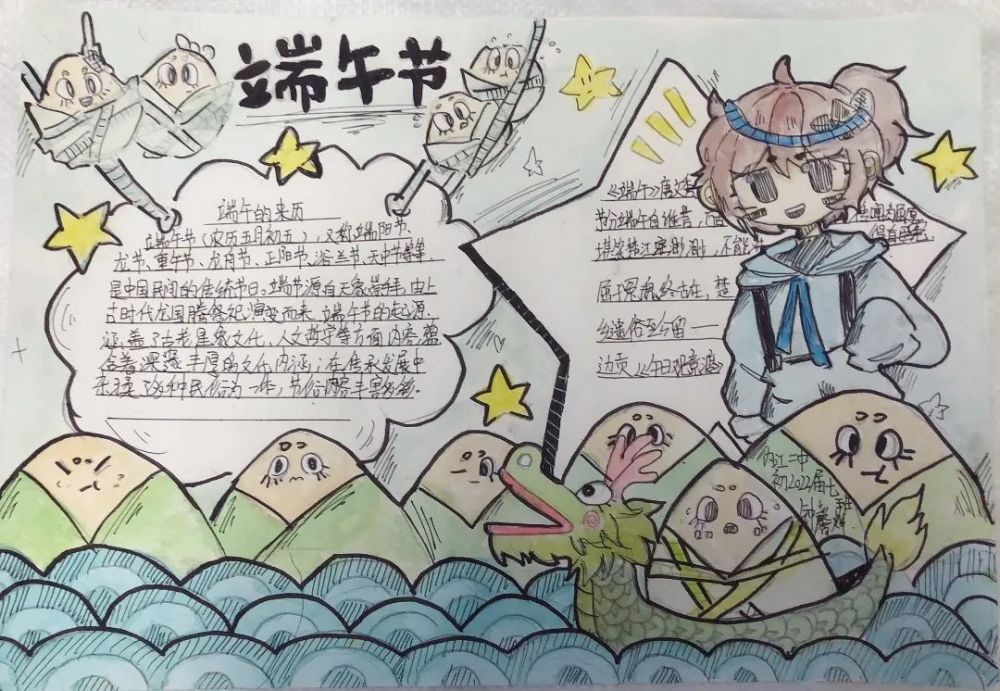 端午节
端午的来历
端午节（农历五月初五），又称端阳节、
龙节、重午节、龙舟节、正阳节、浴兰节、天中节等等，
是中国民间的传统节日。端午节源自天象崇拜，由上
古时代龙图腾祭祀演变而来。端午节的起源
涵盖了古老星象文化、人文哲学等方面内容，蕴
含着深邃丰厚的文化内涵；在传承发展中
杂糅了多种民俗为一体，节俗内容丰富多彩。
《端午》唐
节分端午自谁言，万古
堪笑楚江空渺渺，不能
屈子
终古在，楚
乡遗俗至今留
边贡《午日观竞渡》
内江二中
初2022届七